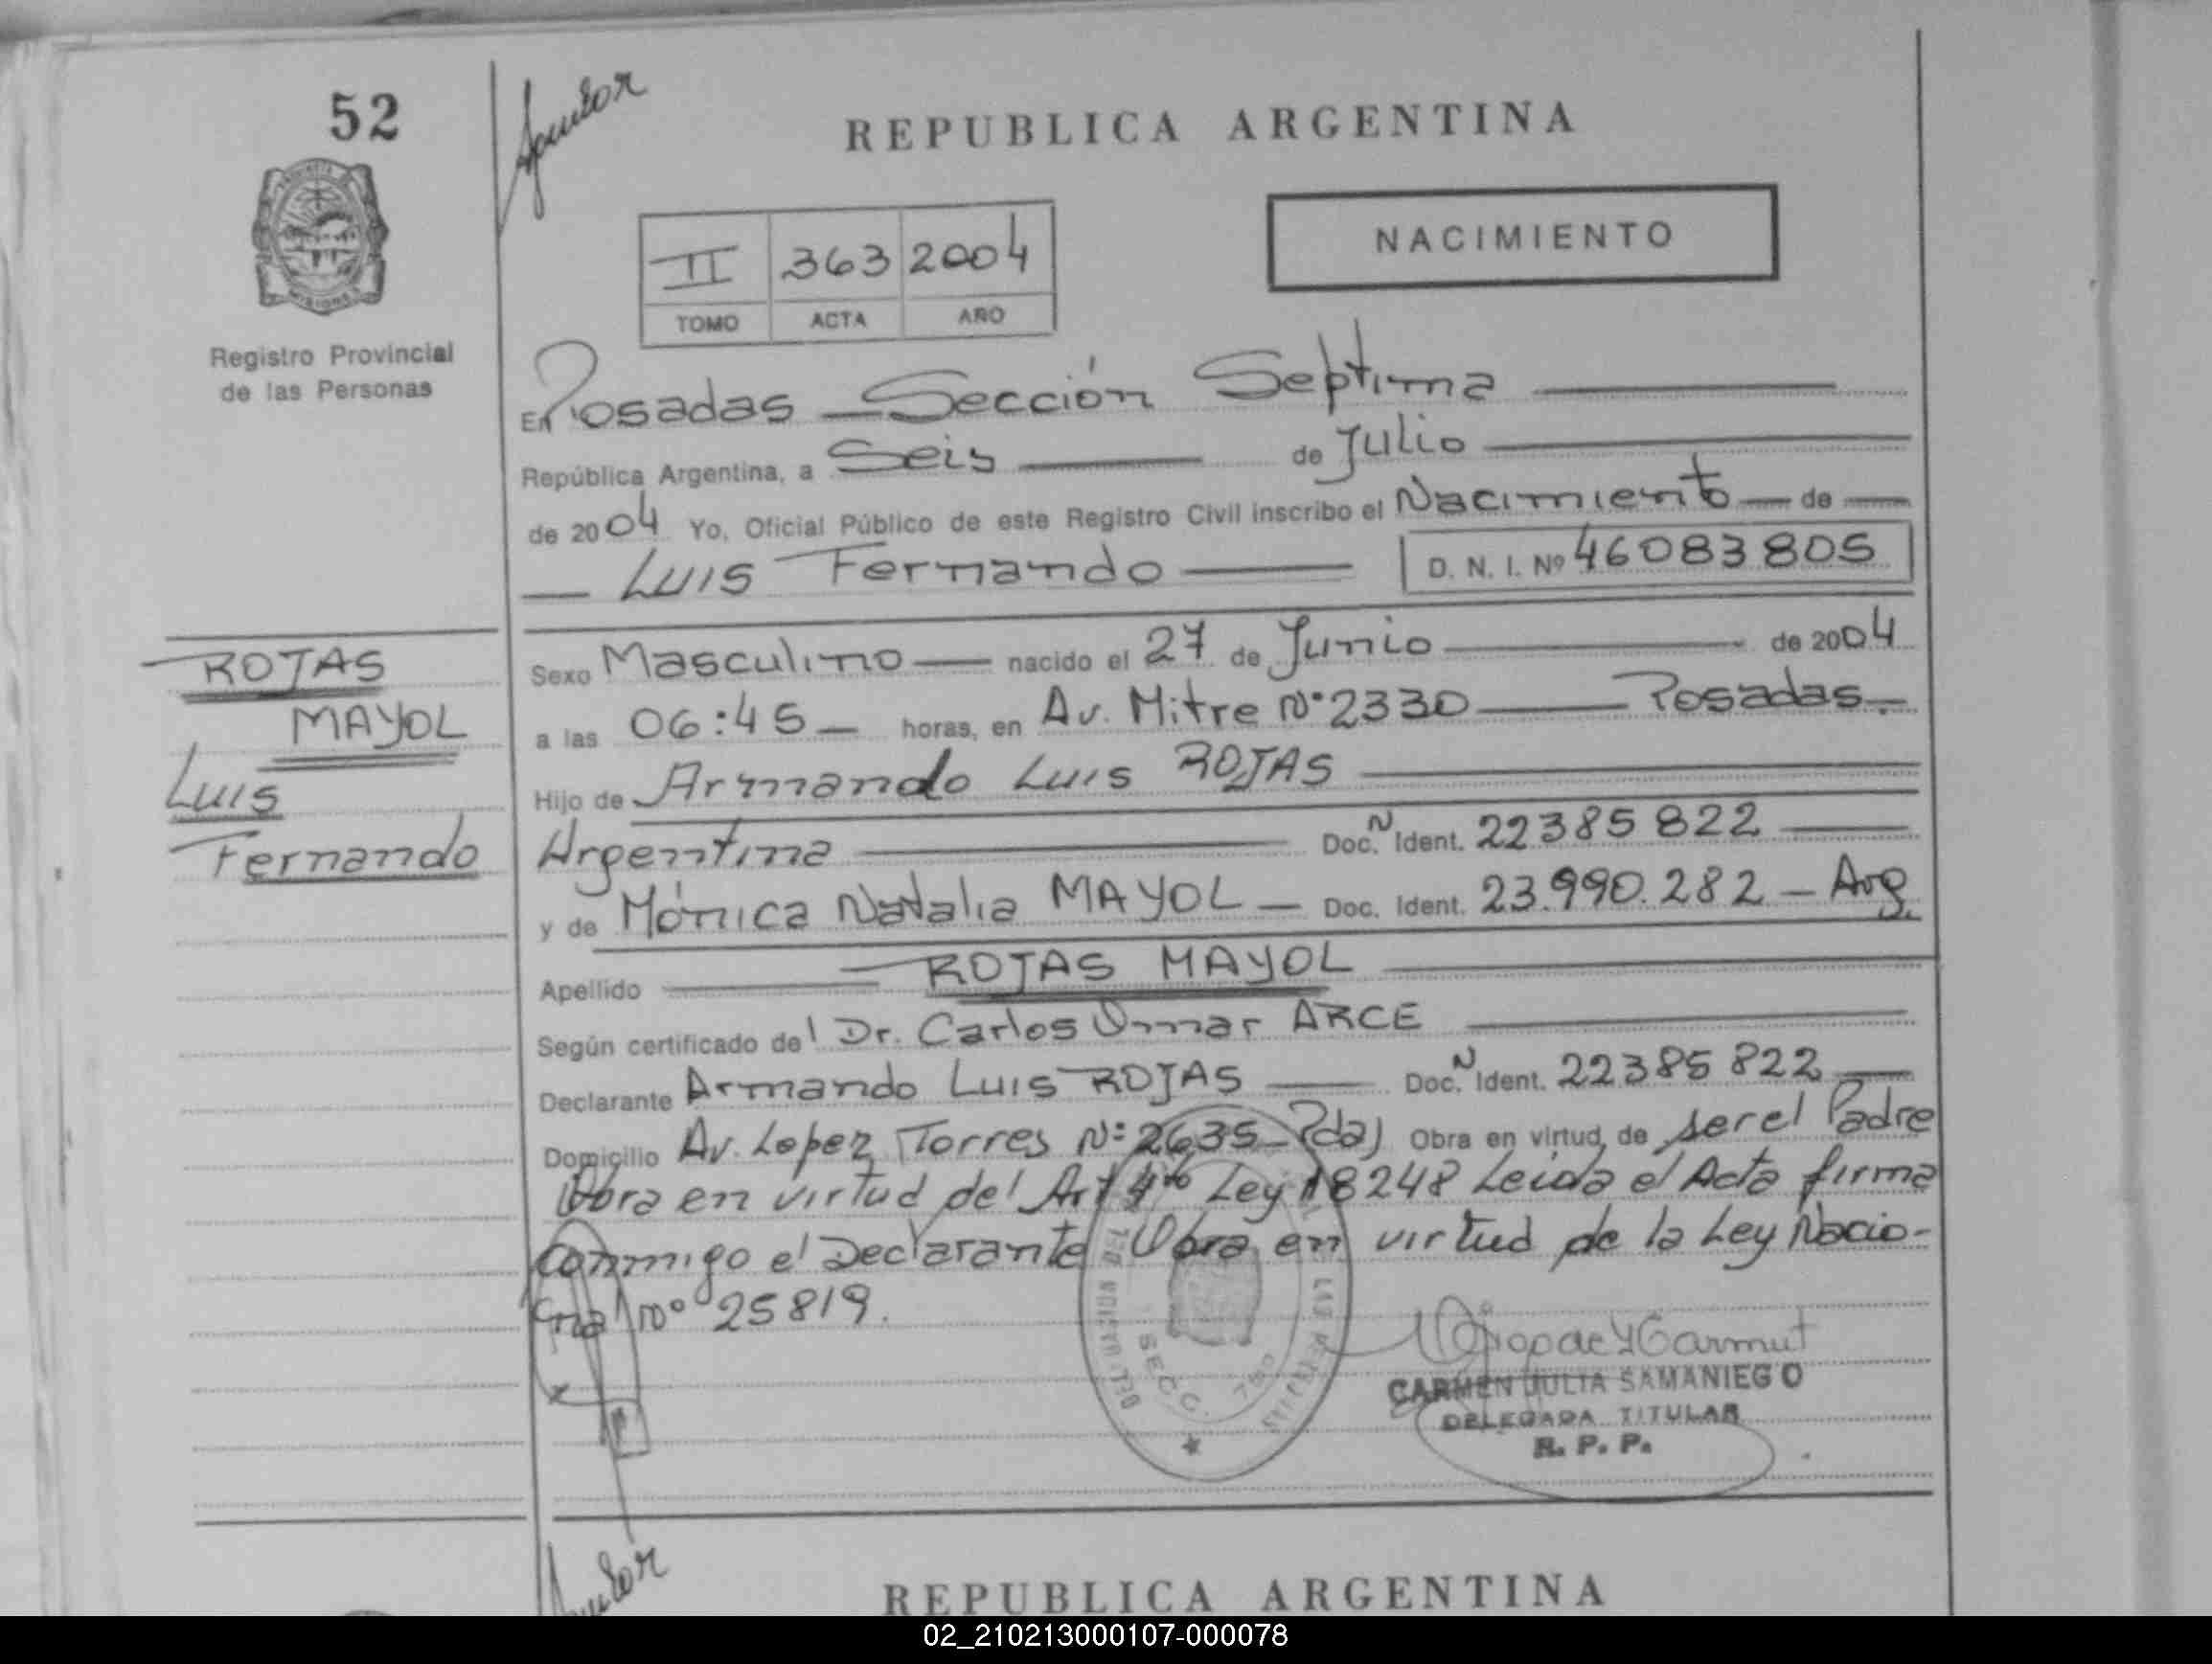 52
REPUBLICA ARGENTINA
NACIMIENTO
II 363 2004
TOMO ACTA AÑO
Registro Provincial
de las Personas
En Posadas — Sección Septima
República Argentina, a Seis de Julio
de 2004 Yo, Oficial Público de este Registro Civil inscribo el Nacimiento — de —
— Luis Fernando — D. N. I. Nº 46083805
ROJAS
MAYOL
Luis
Fernando
Sexo Masculino — nacido el 27 de Junio — de 2004
a las 06:45 — horas, en Av. Mitre Nº 2330 — Posadas.-
Hijo de Armando Luis ROJAS
Argentina — Doc.N Ident. 22385822 —
y de Mónica Natalia MAYOL — Doc. Ident. 23.990.282 — Arg.
Apellido — ROJAS MAYOL
Según certificado del Dr. Carlos Omar ARCE
Declarante Armando Luis ROJAS — Doc.N Ident. 22385822 —
Domicilio Av. Lopez Torres Nº 2635 - Pdas Obra en virtud de ser el Padre
Obra en virtud del Art 4to Ley 18248 Leida el Acta firma
conmigo el Declarante Obra en virtud de la Ley Nacio-
nal Nº 25819.
SECC. 7
CARMEN JULIA SAMANIEGO
DELEGADA TITULAR
R. P. P.
REPUBLICA ARGENTINA
02_210213000107-000078